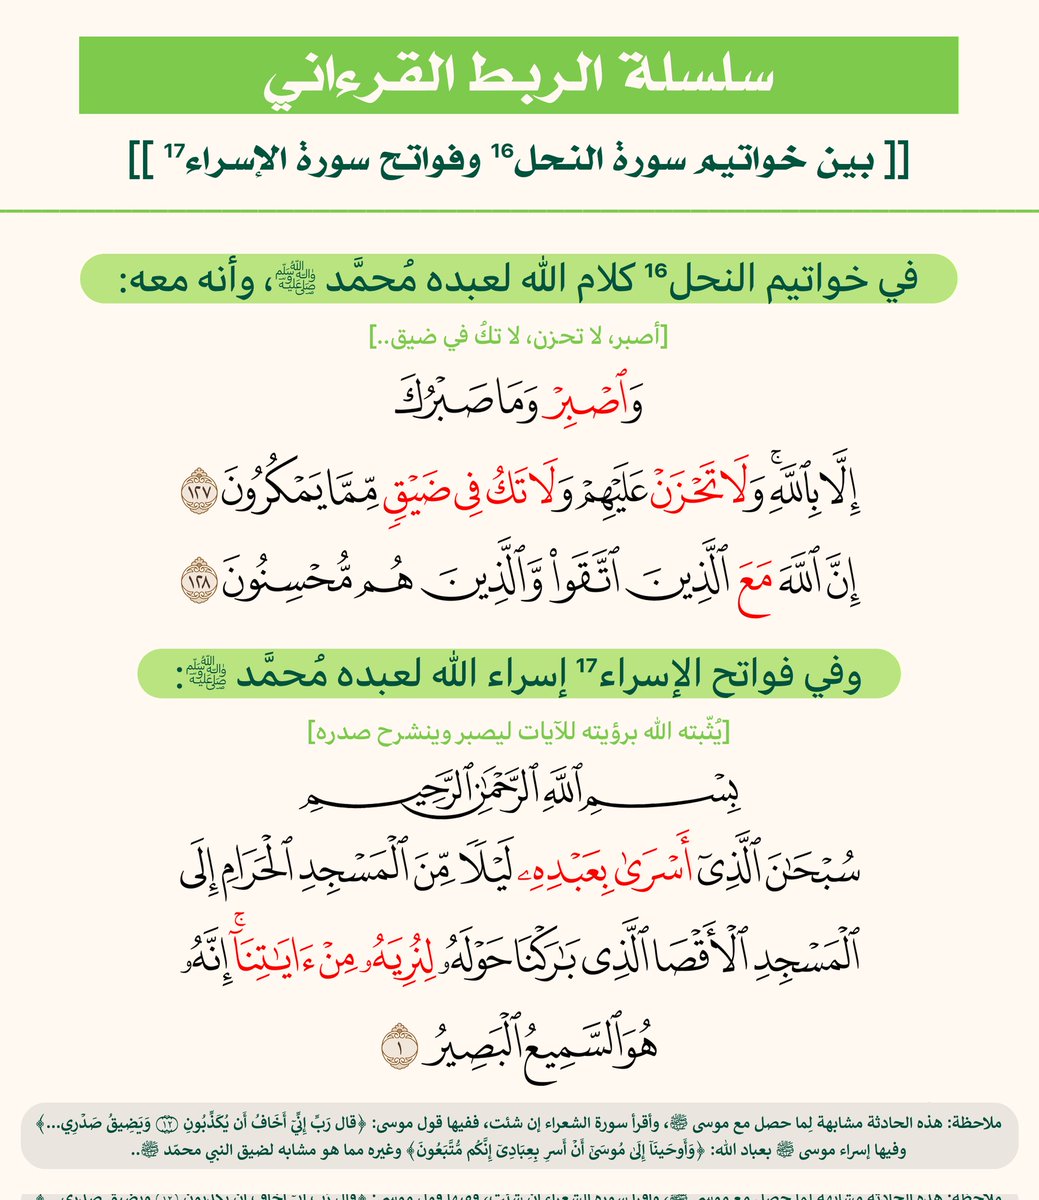 سلسلة الربط القرءاني
[[ بين خواتيم سورة النحل16 وفواتح سورة الإسراء17 ]]
في خواتيم النحل16 كلام الله لعبده مُحمَّد ﷺ، وأنه معه:
[أصبر، لا تحزن، لا تكُ في ضيق..]
وَٱصۡبِرۡ وَمَا صَبۡرُكَ
إِلَّا بِٱللَّهِۚ وَلَا تَحۡزَنۡ عَلَيۡهِمۡ وَلَا تَكُ فِي ضَيۡقٖ مِّمَّا يَمۡكُرُونَ ١٢٧
إِنَّ ٱللَّهَ مَعَ ٱلَّذِينَ ٱتَّقَواْ وَّٱلَّذِينَ هُم مُّحۡسِنُونَ ١٢٨
وفي فواتح الإسراء17 إسراء الله لعبده مُحمَّد ﷺ:
[يُثّبته الله برؤيته للآيات ليصبر وينشرح صدره]
بِسۡمِ ٱللَّهِ ٱلرَّحۡمَٰنِ ٱلرَّحِيمِ
سُبۡحَٰنَ ٱلَّذِيٓ أَسۡرَىٰ بِعَبۡدِهِۦ لَيۡلٗا مِّنَ ٱلۡمَسۡجِدِ ٱلۡحَرَامِ إِلَى
ٱلۡمَسۡجِدِ ٱلۡأَقۡصَا ٱلَّذِي بَٰرَكۡنَا حَوۡلَهُۥ لِنُرِيَهُۥ مِنۡ ءَايَٰتِنَآۚ إِنَّهُۥ
هُوَ ٱلسَّمِيعُ ٱلۡبَصِيرُ ١
ملاحظة: هذه الحادثة مشابهة لِما حصل مع موسى ﷺ، وأقرأ سورة الشعراء إن شئت، ففيها قول موسى: ﴿قَالَ رَبِّ إِنِّيٓ أَخَافُ أَن يُكَذِّبُونِ ١٢ وَيَضِيقُ صَدۡرِي...﴾
وفيها إسراء موسى ﷺ بعباد الله: ﴿وَأَوۡحَيۡنَآ إِلَىٰ مُوسَىٰٓ أَنۡ أَسۡرِ بِعِبَادِيٓ إِنَّكُم مُّتَّبَعُونَ﴾ وغيره مما هو مشابه لضيق النبي محمّد ﷺ..